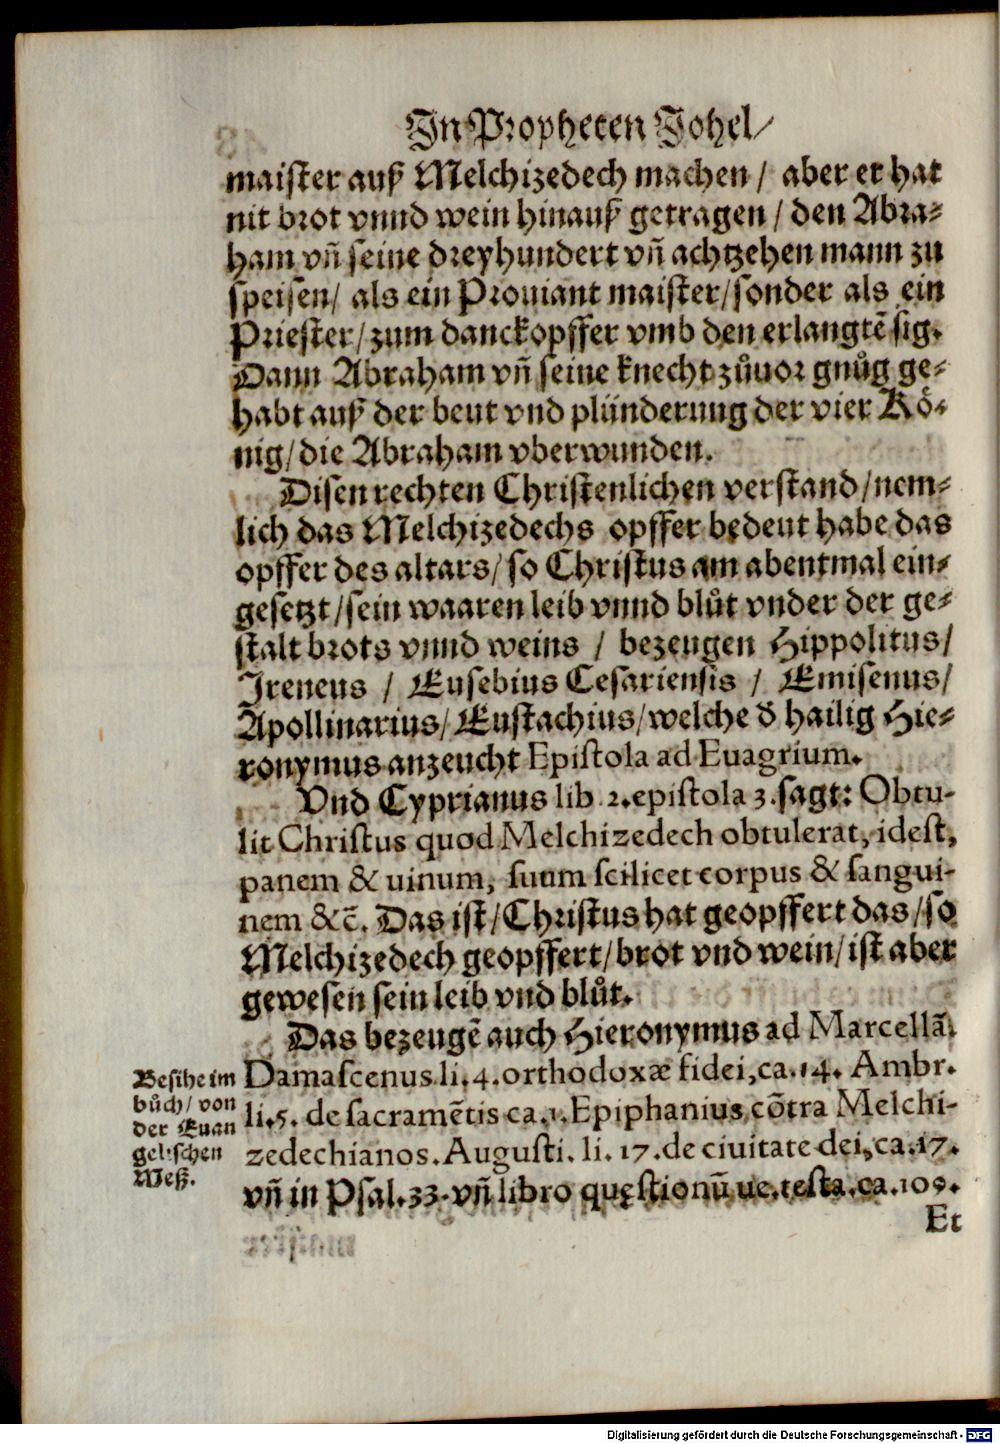 In Propheten Johel/
maister auß Melchizedech machen / aber er hat
nit brot vnnd wein hinauß getragen / den Abra-
ham vñ seine dreyhundert vñ achtzehen mann zu
speisen/ als ein Prouiant maister/sonder als ein
Priester/zum danckopffer vmb den erlangtẽ sig.
Dann Abraham vñ seine knecht zůuor gnůg ge-
habt auß der beut vnd plünderung der vier Kö-
nig/die Abraham vberwunden.
Disen rechten Christenlichen verstand/nem-
lich das Melchizedechs opffer bedeut habe das
opffer des altars/so Christus am abentmal ein-
gesetzt/sein waaren leib vnnd blůt vnder der ge-
stalt brots vnnd weins / bezeugen Hippolitus/
Ireneus / Eusebius Cesariensis / Emisenus/
Apollinarius/Eustachius/welche d̕ hailig Hie-
ronymus anzeucht Epistola ad Euagrium.
Vnd Cyprianus lib .2.epistola 3.sagt: Obtu-
lit Christus quod Melchizedech obtulerat, idest,
panem & uinum, suum scilicet corpus & sangui-
nem &c̃. Das ist/Christus hat geopffert das/so
Melchizedech geopffert/brot vnd wein/ist aber
gewesen sein leib vnd blůt.
Das bezeugẽ auch Hieronymus ad Marcellã.
Damascenus li.4.orthodoxæ fidei,ca.14. Ambr.
li.5. de sacramẽtis ca.1.Epiphanius cõtra Melchi-
zedechianos.Augusti. li. 17.de ciuitate dei,ca.17.
vñ in Psal.33.vñ libro quęstionũ ue.testa.ca.109.
Et
Besihe im
bůch/ von
der Euan
gelischen
Meß.
Digitalisierung gefördert durch die Deutsche Forschungsgemeinschaft - DFG